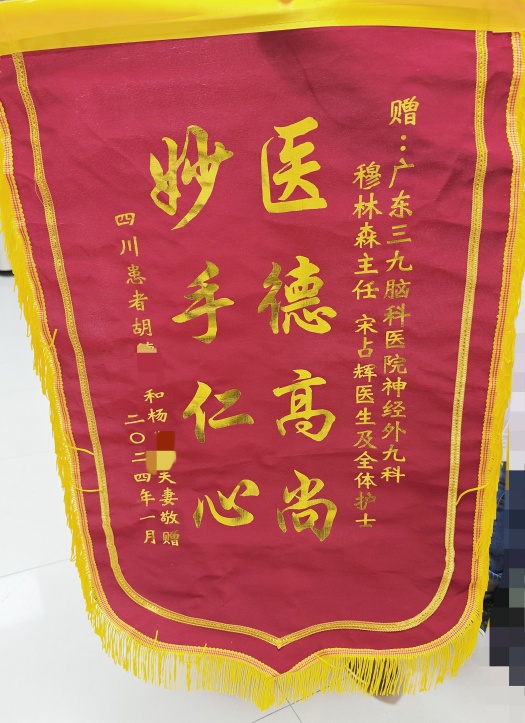 赠：广东三九脑科医院神经外九科
穆林森主任 宋占辉医生及全体护士
医德高尚
妙手仁心
四川患者胡
和杨 夫妻敬赠
二〇二四年一月